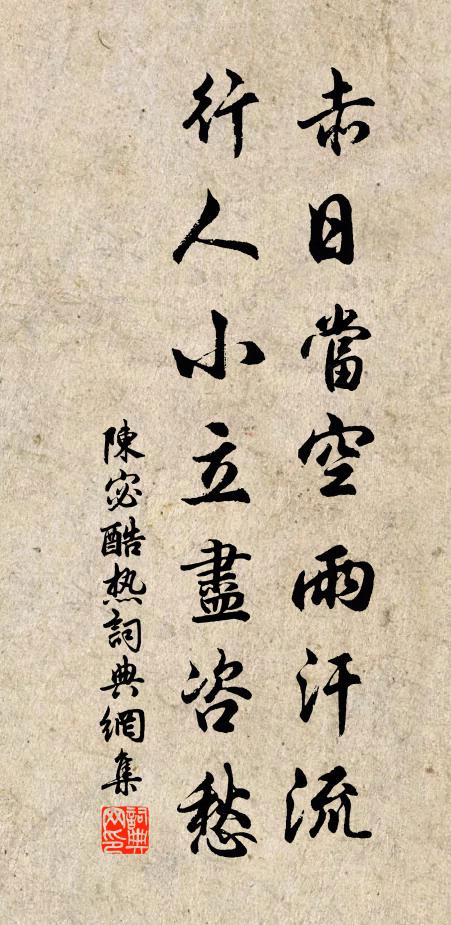 赤日當空雨汗流
行人小立盡咨愁
陳宓酷热詞典網集
詞典網印